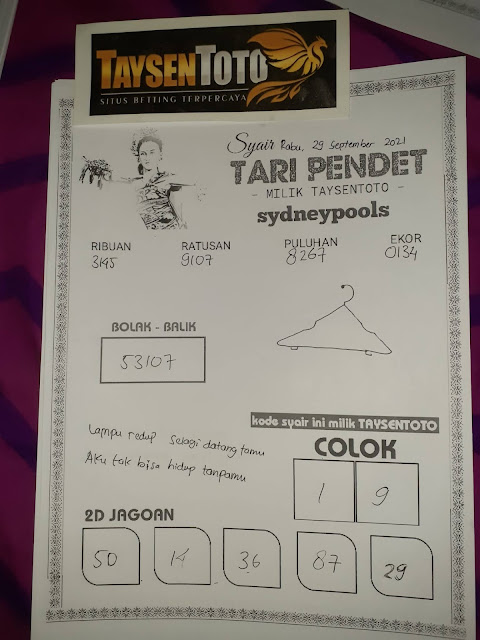 TAYSENTOTO
SITUS BETTING TERPERCAYA
Syair Rabu, 29 September 2021
TARI PENDET
- MILIK TAYSENTOTO -
sydneypools
RIBUAN RATUSAN PULUHAN EKOR
3145 9107 8267 0134
BOLAK - BALIK
53107
kode syair ini milik TAYSENTOTO
Lampu redup selagi datang tamu
Aku tak bisa hidup tanpamu
COLOK
1 9
2D JAGOAN
50 14 36 87 29